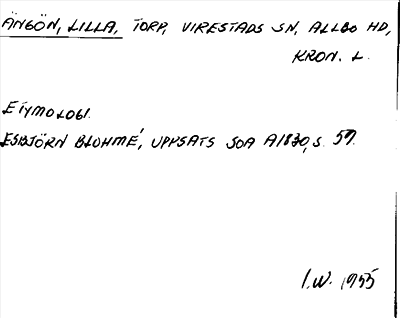 ÄNGÖN, LILLA, TORP, VIRESTADS SN, ALLBO HD,
KRON. L.
ETYMOLOGI.
ESBJÖRN BLOHMÉ, UPPSATS SOA A1830, S. 57.
I.W. 1955